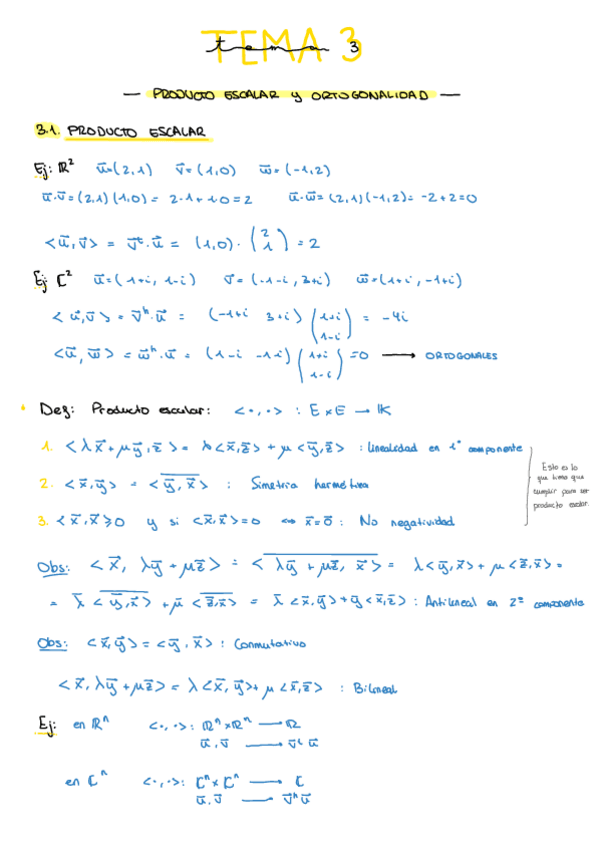 TEMA 3
tema 3
— PRODUCTO ESCALAR y ORTOGONALIDAD —
3.1. PRODUCTO ESCALAR
Ej: ℝ² u⃗=(2,1) v⃗=(1,0) w⃗=(-1,2)
u⃗·v⃗=(2,1)(1,0)= 2·1+1·0=2 u⃗·w⃗=(2,1)(-1,2)= -2+2=0
<u⃗,v⃗> = v⃗ᵗ·u⃗ = (1,0)·(2 1) = 2
Ej ℂ² u⃗=(1+i, 1-i) v⃗=(-1-i, 3+i) w⃗=(1+i, -1+i)
<u⃗,v⃗> = v⃗ʰ·u⃗ = (-1+i 3+i)(1+i 1-i) = -4i
<u⃗,w⃗> = w⃗ʰ·u⃗ = (1-i -1-i)(1+i 1-i) =0 ⟶ ORTOGONALES
* Def: Producto escalar: <·,·> : E×E → K
1. <λx⃗+μy⃗,z⃗> = λ<x⃗,z⃗> + μ<y⃗,z⃗> : Linealidad en 1ª componente
2. <x⃗,y⃗> = \overline{<y⃗,x⃗>} : Simetria hermítica
3. <x⃗,x⃗>≥0 y si <x⃗,x⃗>=0 ⇔ x⃗=0⃗ : No negatividad
Esto es lo
que tiene que
cumplir para ser
producto escalar.
Obs: <x⃗, λy⃗+μz⃗> = \overline{<λy⃗+μz⃗, x⃗>} = λ<y⃗,x⃗> + μ<z⃗,x⃗> =
= λ̄ \overline{<y⃗,x⃗>} + μ̄ \overline{<z⃗,x⃗>} = λ̄ <x⃗,y⃗> + μ̄<x⃗,z⃗> : Antilineal en 2ª componente
Obs: <x⃗,y⃗> = <y⃗,x⃗> : Conmutativo
<x⃗, λy⃗+μz⃗> = λ<x⃗,y⃗> + μ<x⃗,z⃗> : Bilineal
Ej: en ℝⁿ <·,·>: ℝⁿ×ℝⁿ ⟶ ℝ
u⃗,v⃗ ⟶ v⃗ᵗu⃗
en ℂⁿ <·,·>: ℂⁿ×ℂⁿ ⟶ ℂ
u⃗,v⃗ ⟶ v⃗ʰu⃗